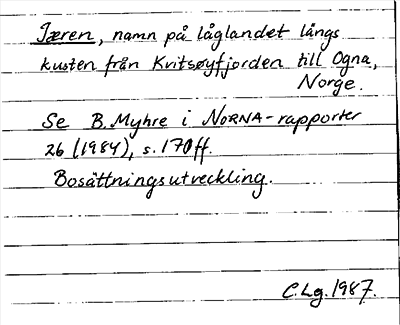 Jæren, namn på låglandet längs
kusten från Kvitsøyfjorden till Ogna,
Norge.
Se B. Myhre i NORNA-rapporter
26 (1984), s. 170ff.
Bosättningsutveckling.
C.Lg. 1987.